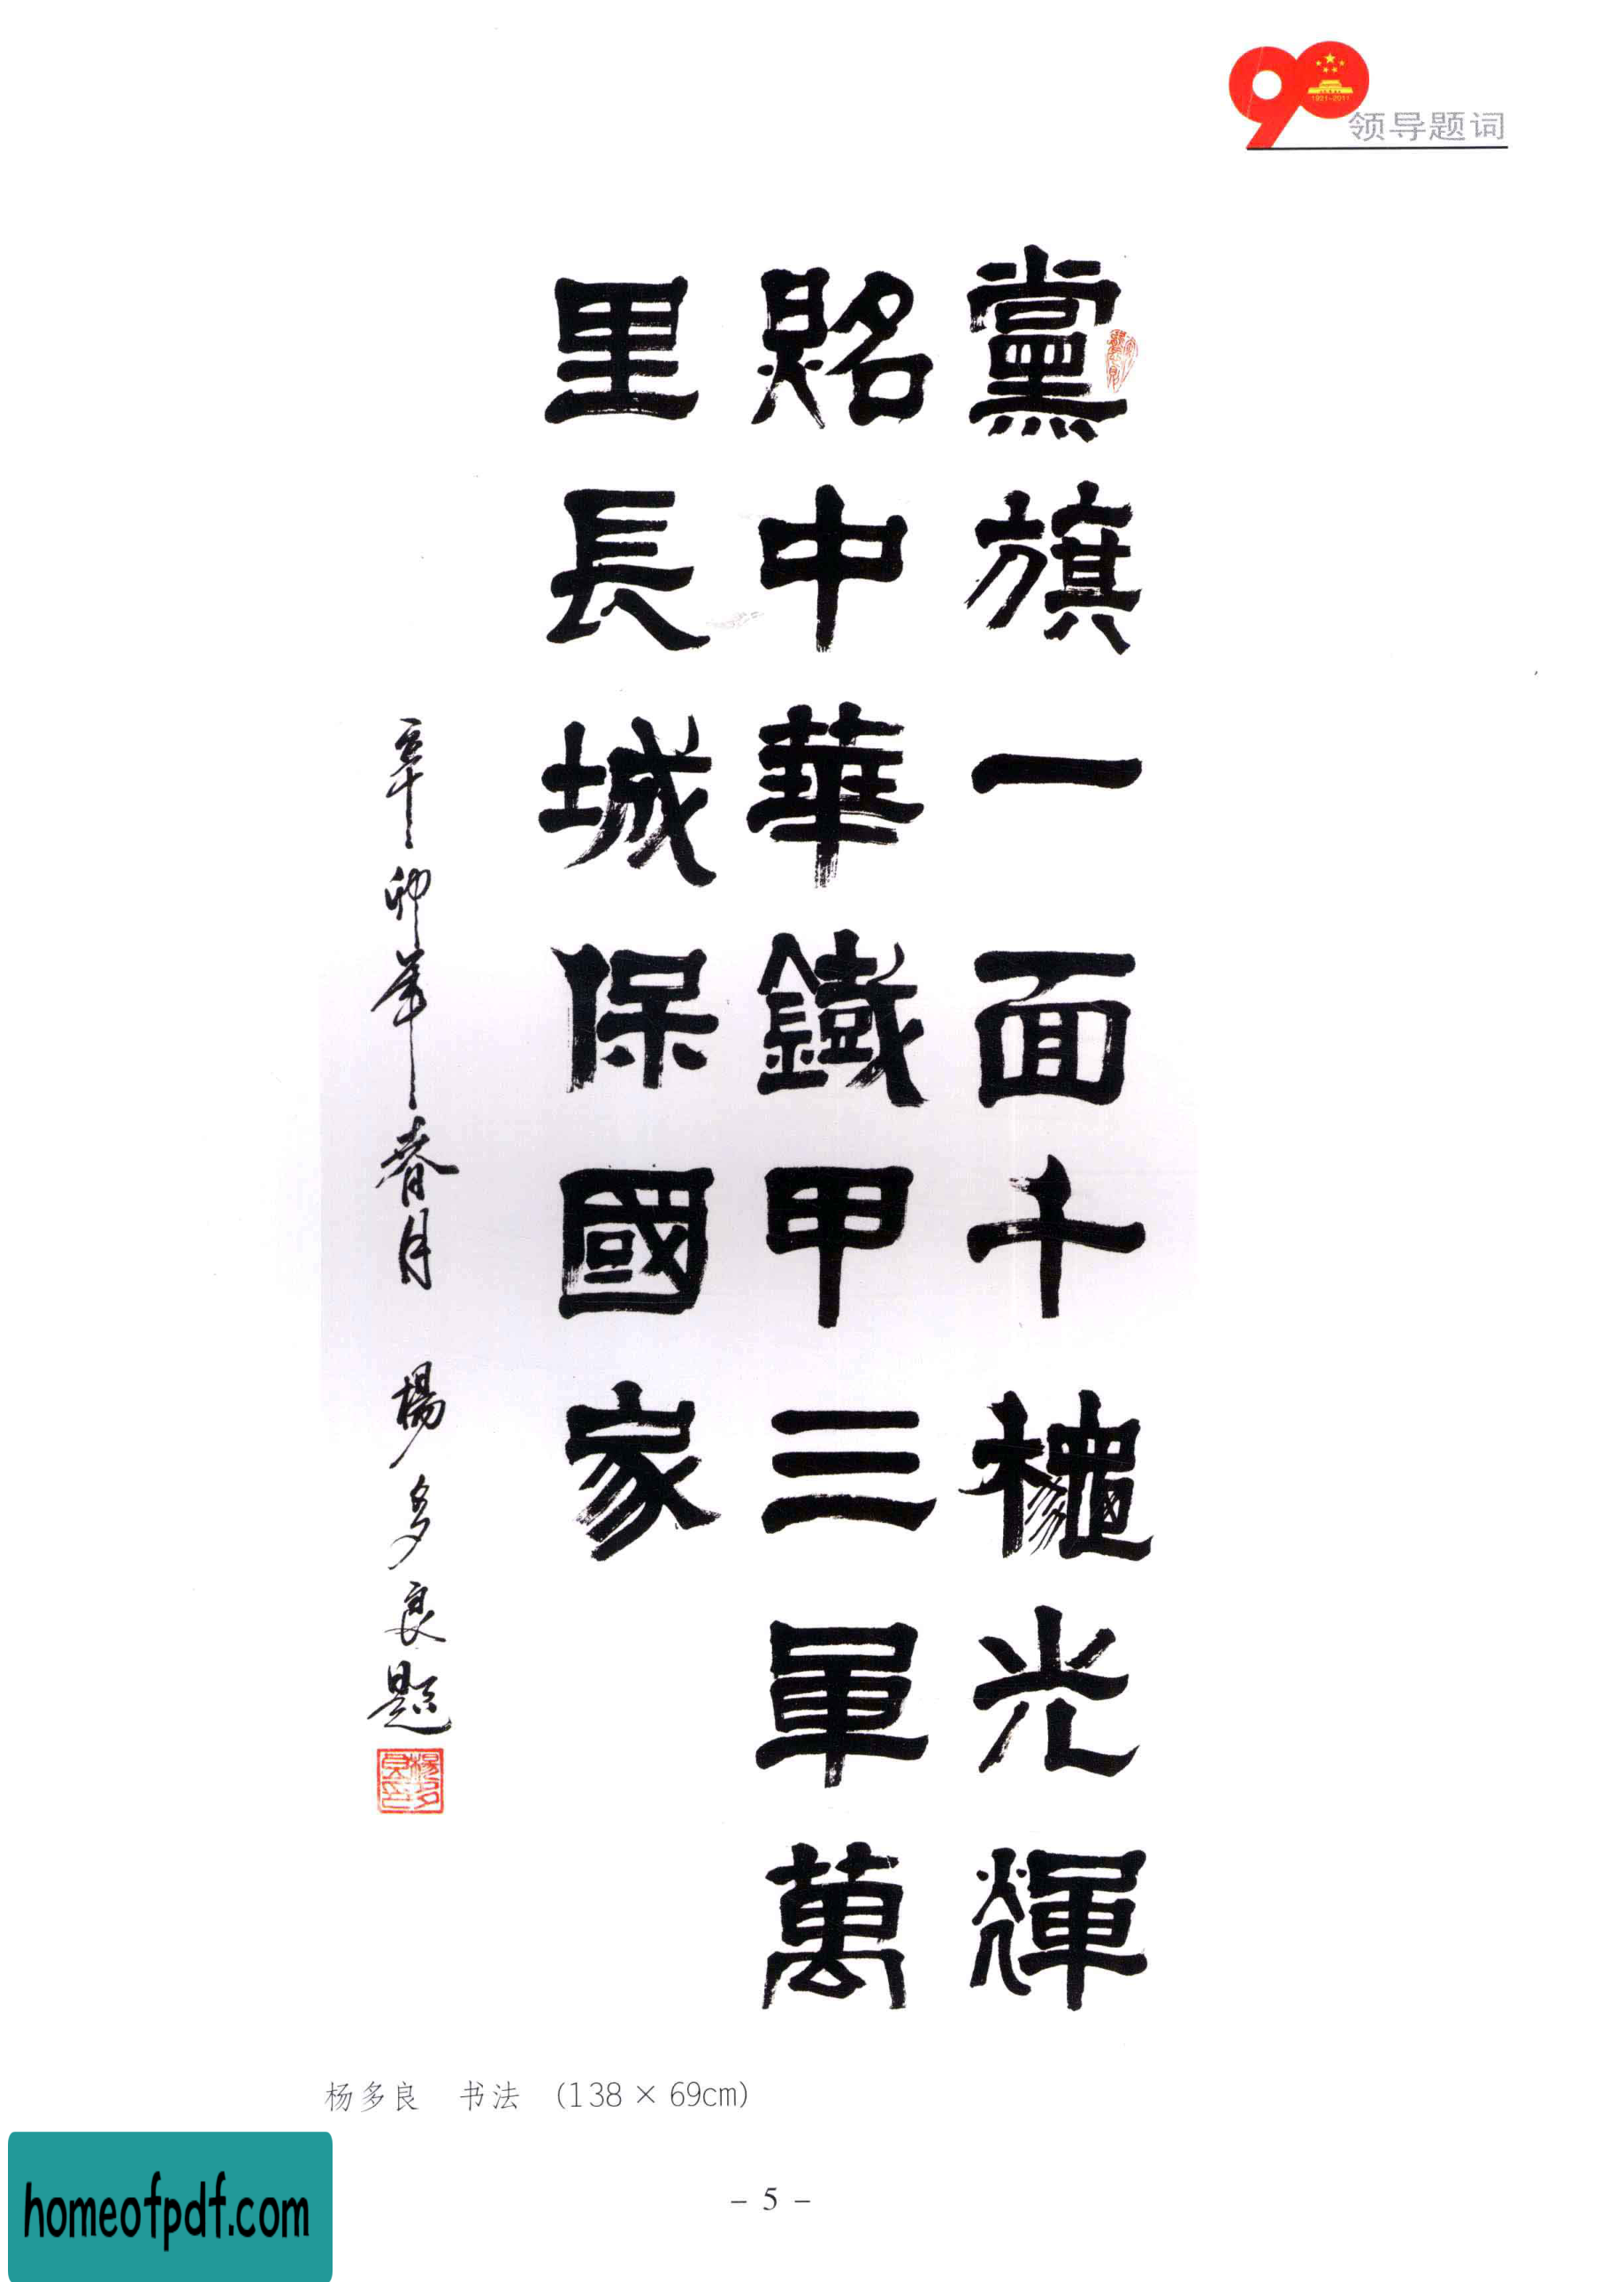 1921-2011
领导题词
黨旗一面千龝光輝
照中華鐵甲三軍萬
里長城保國家
辛卯年春月 楊多良題
杨多良 书法 (138 × 69cm)
- 5 -
homeofpdf.com